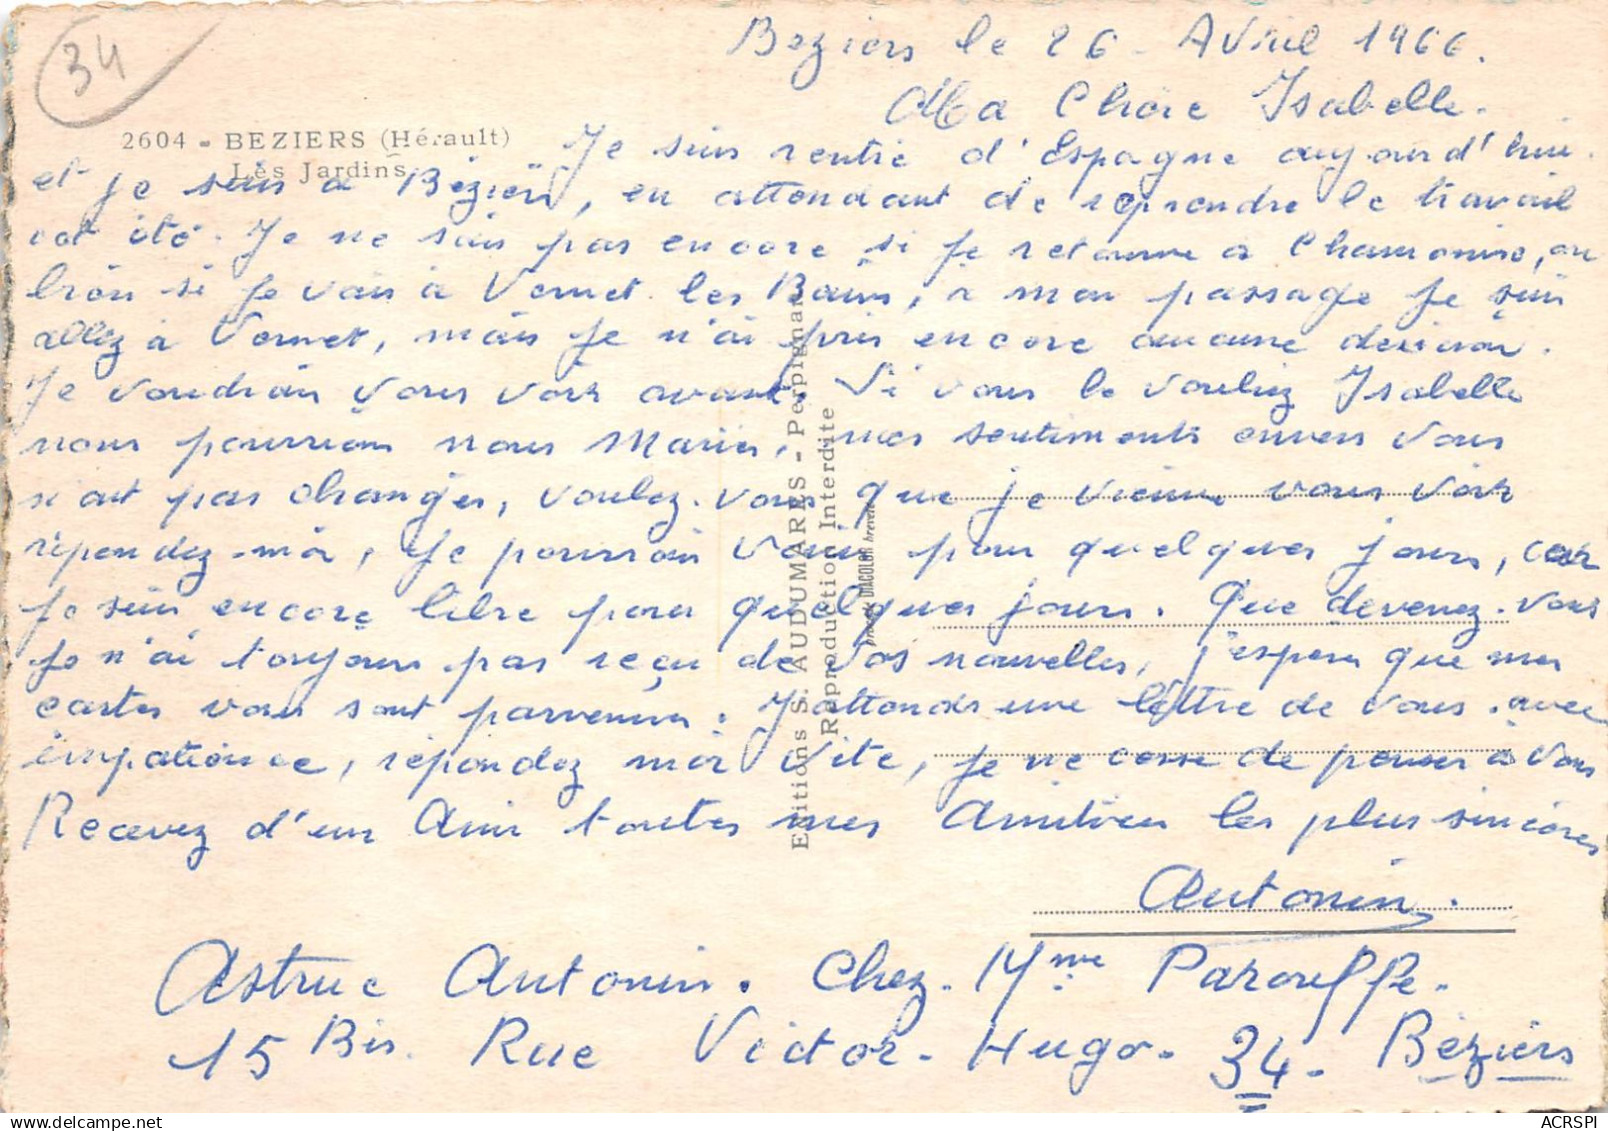 34
Beziers le 26 - Avril 1966.
Ma Chére Isabelle.
2604 - BEZIERS (Hérault)
Les Jardins
Je suis rentré d'Espagne aujourd'hui.
et je suis a Béziers, en attendant de reprendre le travail
cet été. Je ne sais pas encore si je retourne a Chamonix, ou
bien si je vais à Vernet les Bains, a mon passage je suis
allez a Vernet, mais je n'ai pris encore aucune decision.
Je voudrais vous voir avant. Si vous le vouliez Isabelle
nous pourrions nous Marier, mes sentiments envers vous
n'ont pas changer, voulez-vous que je vienne vous voir
répondez-moi, je pourrais venir pour quelques jours, car
je suis encore libre pour quelques jours. Que devenez-vous
je n'ai toujours pas reçu de vos nouvelles, j'espere que mes
cartes vous sont parvenues. J'attends une lettre de vous. avec
impatience, répondez moi vite, je ne cesse de penser à vous
Recevez d'un Ami toutes mes Amitiés les plus sincères
Antonin.
Astruc Antonin. Chez. Mme Parouffe.
15 Bis. Rue Victor-Hugo. 34- Béziers
Editions S. AUDUMARES - Perpignan
Reproduction Interdite
DIACOLOR breveté
delcampe.net
ACRSPI